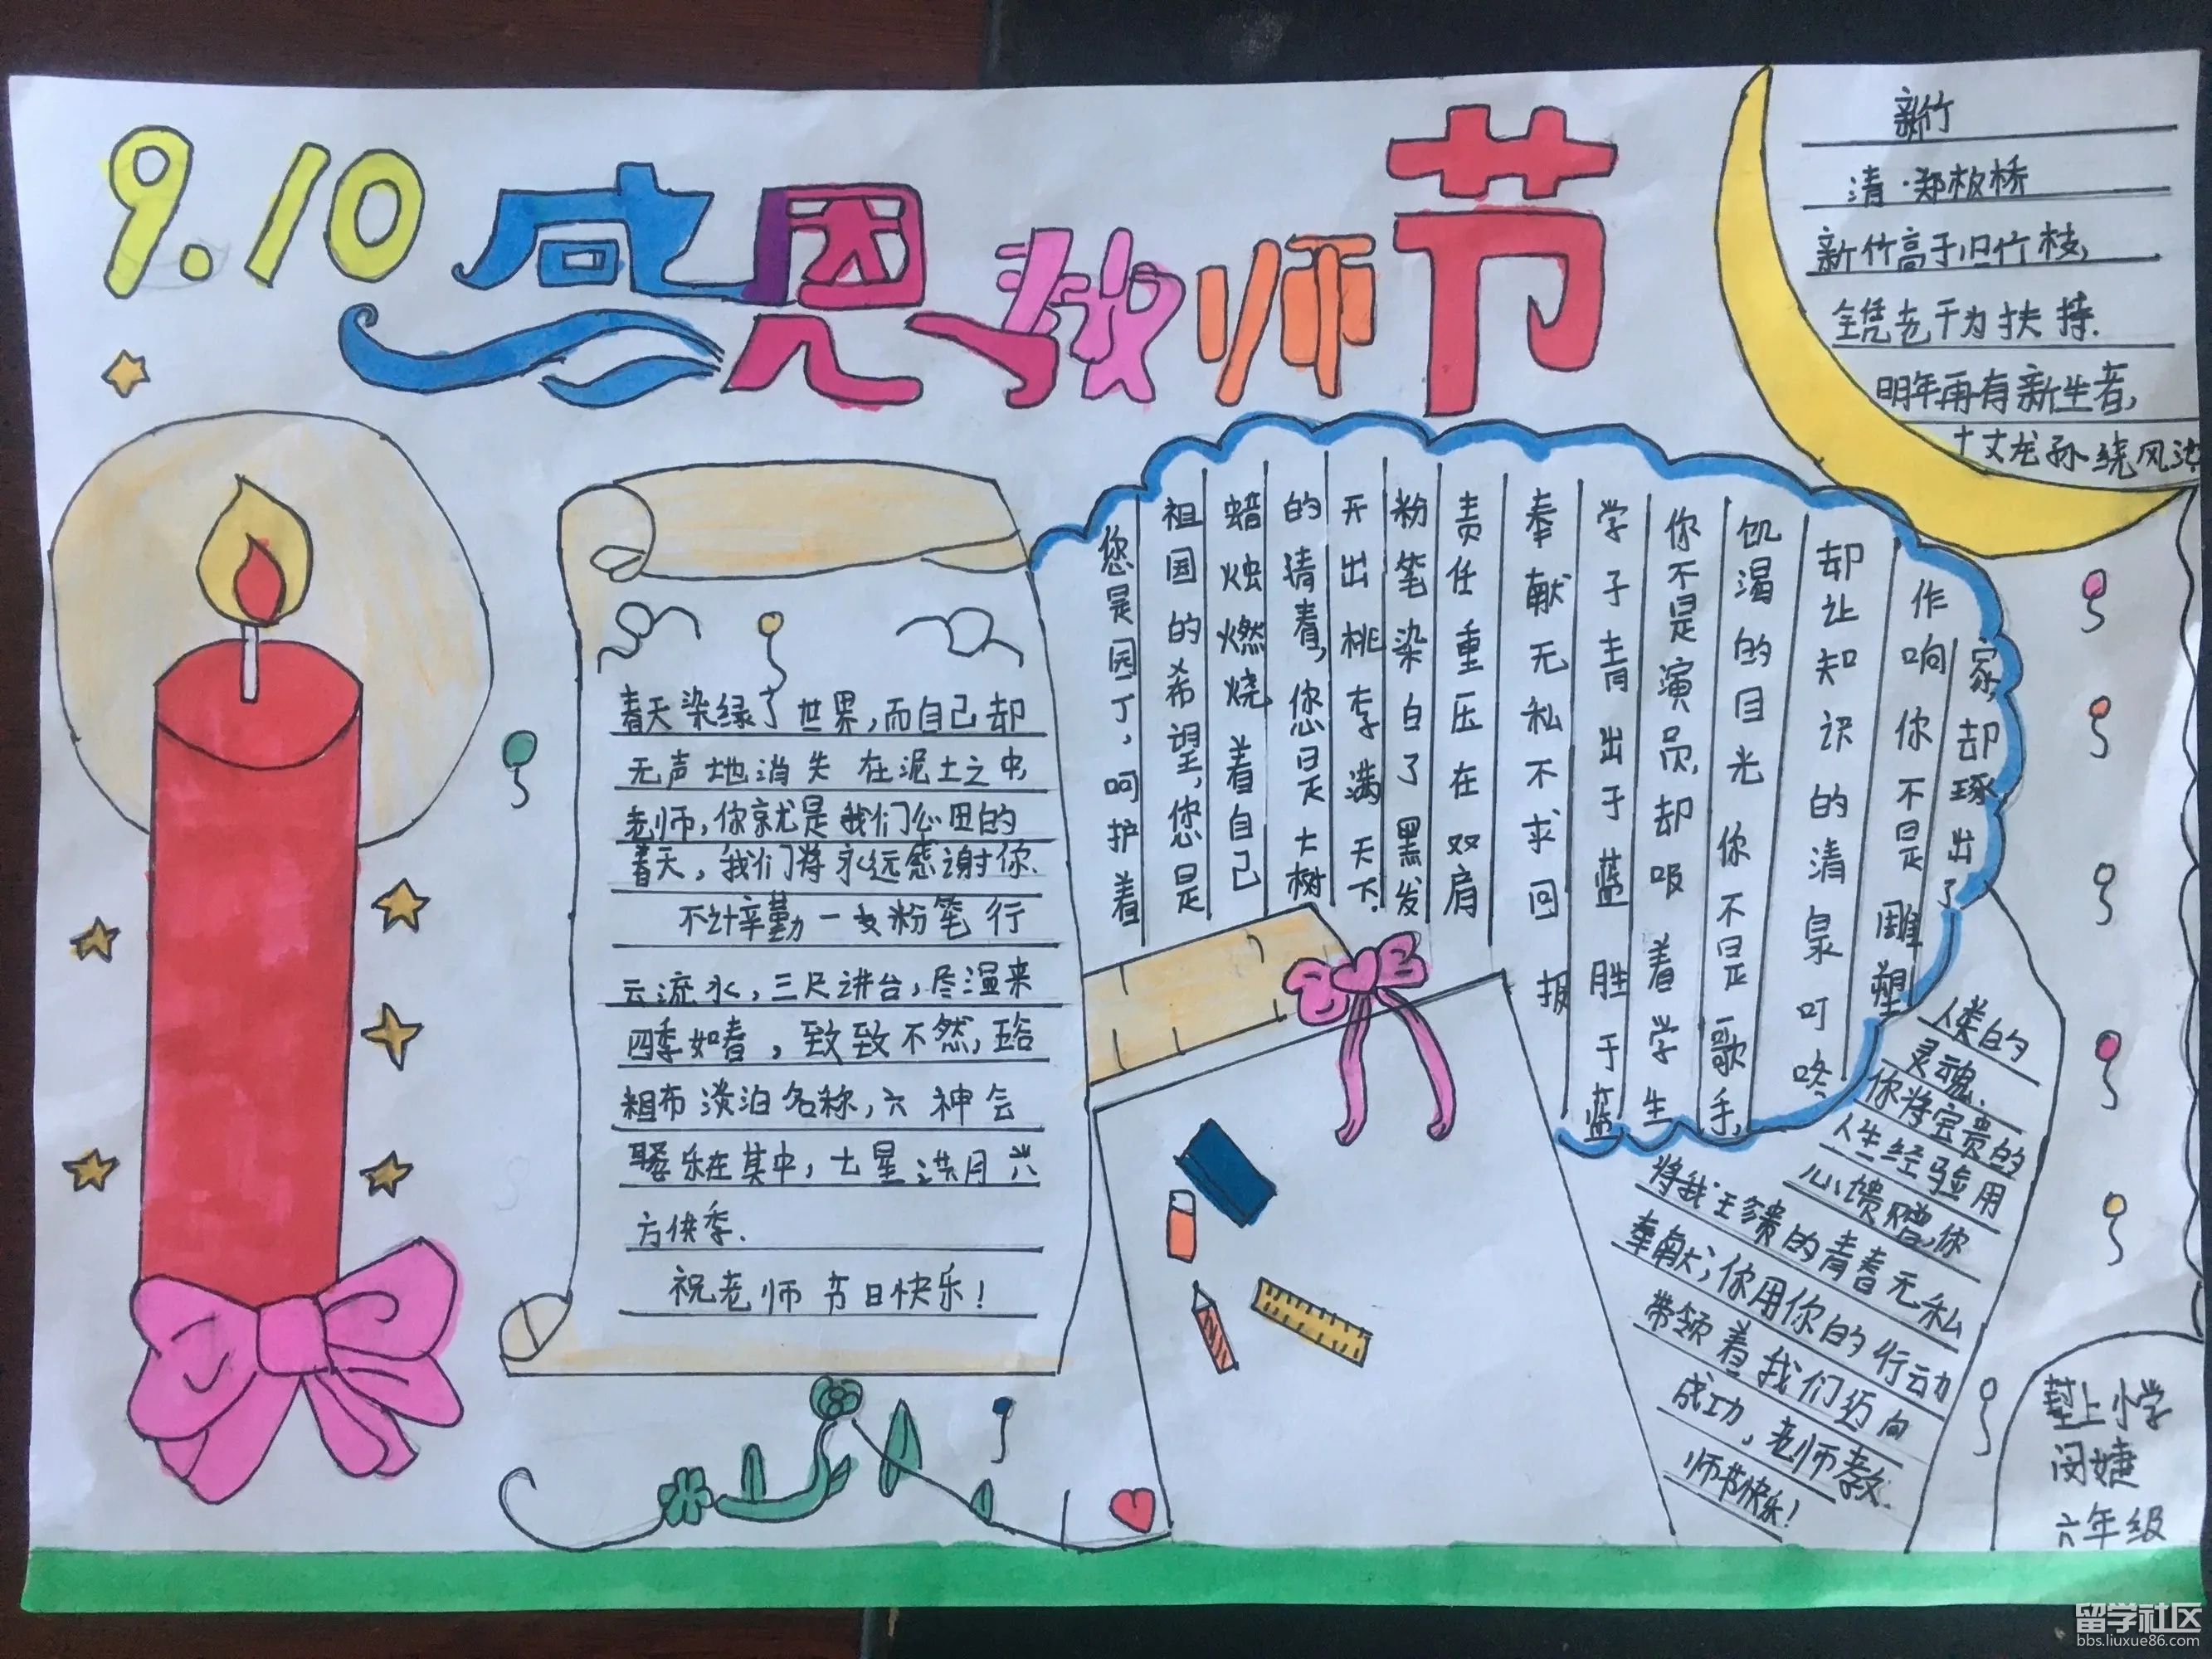 9.10 感恩教师节
新竹
清·郑板桥
新竹高于旧竹枝,
全凭老干为扶持.
明年再有新生者,
十丈龙孙绕风池
春天染绿了世界,而自己却
无声地消失在泥土之中,
老师,你就是我们心里的
春天,我们将永远感谢你.
不计辛勤一支粉笔行
云流水,三尺讲台,尽温来
四季如春,致致不然,
粗布淡泊名称,六神会
聚乐在其中,七星洪月六
方供季.
祝老师节日快乐!
您是园丁,呵护着
祖国的希望,您是
蜡烛燃烧着自己
的请春,您是大树
开出桃李满天下.
粉笔染白了黑发
责任重压在双肩
奉献无私不求回报
学子青出于蓝胜于蓝
你不是演员,却吸着学生
饥渴的目光你不是歌手,
却让知识的清泉叮咚
作响你不是雕塑
家,却琢出了
人类的
灵魂.
你将宝贵的
人生经验用
心馈赠,你
将我王贵的青春无私
奉献;你用你的行动
带领着我们迈向
成功,老师教
师节快乐!
小学
闵婕
六年级
留学社区
bbs.liuxue86.com